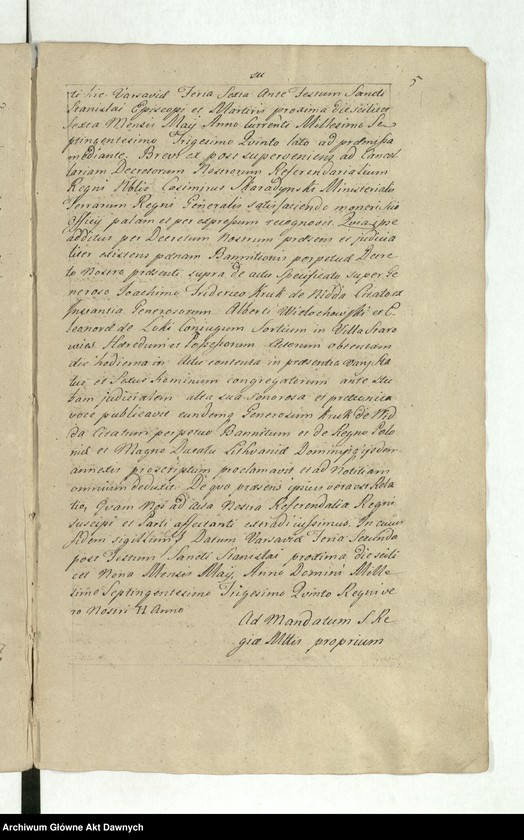 su
5
ti hic Varsaviæ Feria Sexta Ante Festum Sancti
Stanislai Episcopi et Martiris proxima die scilicet
Sexta Mensis Maij Anno Currenti Millesimo Se
ptingentesimo Trigesimo Quinto lato ad præmissa
mediante. Brevi et post superveniens ad Cancel
lariam Decretorum Nostrorum Referendariatium
Regni Ministerialis
Terrarum Regni Generalis satisfaciendo muneri sui
Officij palam et per expressum recognovit. Quia ipse
additus per Decretum Nostrum præsens et judicia
liter existens pœnam Bannitionis perpetuæ Decre
to Nostro præsenti supra de actu Specificato super Ge
neroso Joachimo Friderico Kruk de Nidda Citato ad
Instantia Generosorum Alberti Wielochowski et E
leonoræ de Loki Conjugum Sortium in Villa Staro
wies Hæredum et Possessorum Actorum obtentam
die hodierna in Actu contenta in præsentia varij Sta
tus, et Sexus hominum congregatorum ante stu
bam judicialem alta sua sonorosa et præconica
voce publicavit eundemq Generosum Kruk de Nid
da Citatum perpetuo Bannitum et de Regno Polo
niæ et Magno Ducatu Lithvaniæ Dominijsq ijsdem
annexis proscriptum proclamavit et ad Notitiam
omnium deduxit. De quo præsens ipsius vera est Rela
tio, Quam Nos ad acta Nostra Referendalia Regni
suscipi et Parti affectanti extradi jussimus. In cujus
fidem sigillum Datum Varsaviæ Feria Secunda
post Festum Sancti Stanislai proxima die scili
cet Nona Mensis Maij, Anno Domini Mille
simo Septingentesimo Trigesimo Quinto Regni ve
ro Nostri II Anno
Ad Mandatum S. Re
giæ Mttis proprium
Archiwum Główne Akt Dawnych